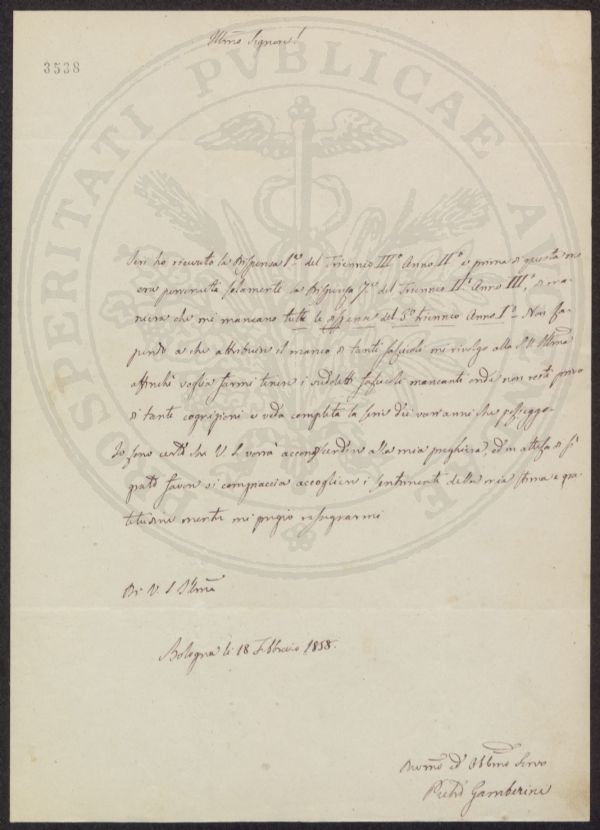 Illmo Signore!
3538
PROSPERITATI PVBLICAE AVGENDAE
Ieri ho ricevuto la Dispensa 1ª del Triennio IIIº Anno IIº e prima di questa m'
era pervenuta solamente la Dispensa 7ª del Triennio IIº Anno IIIº, di ma-
niera che mi mancano tutte le dispense del 3º triennio Anno Iº. Non sa-
pendo a che attribuire il manco di tanti fascicoli mi rivolgo alla S. V. Illma
affinchè voglia farmi tenere i suddetti fascicoli mancanti onde non resti privo
di tante cognizioni e veda completa la serie dei vari anni che posseggo.
Io sono certo che V. S. vorrà accondiscendere alla mia preghiera, ed in attesa di sì
grato favore si compiaccia accogliere i sentimenti della mia stima e gra-
titudine mentre mi pregio rassegnarmi
Di V. S. Illma
Bologna li 18 Febbraio 1858.
Devmo ed Obbmo Servo
Pietro Gamberini